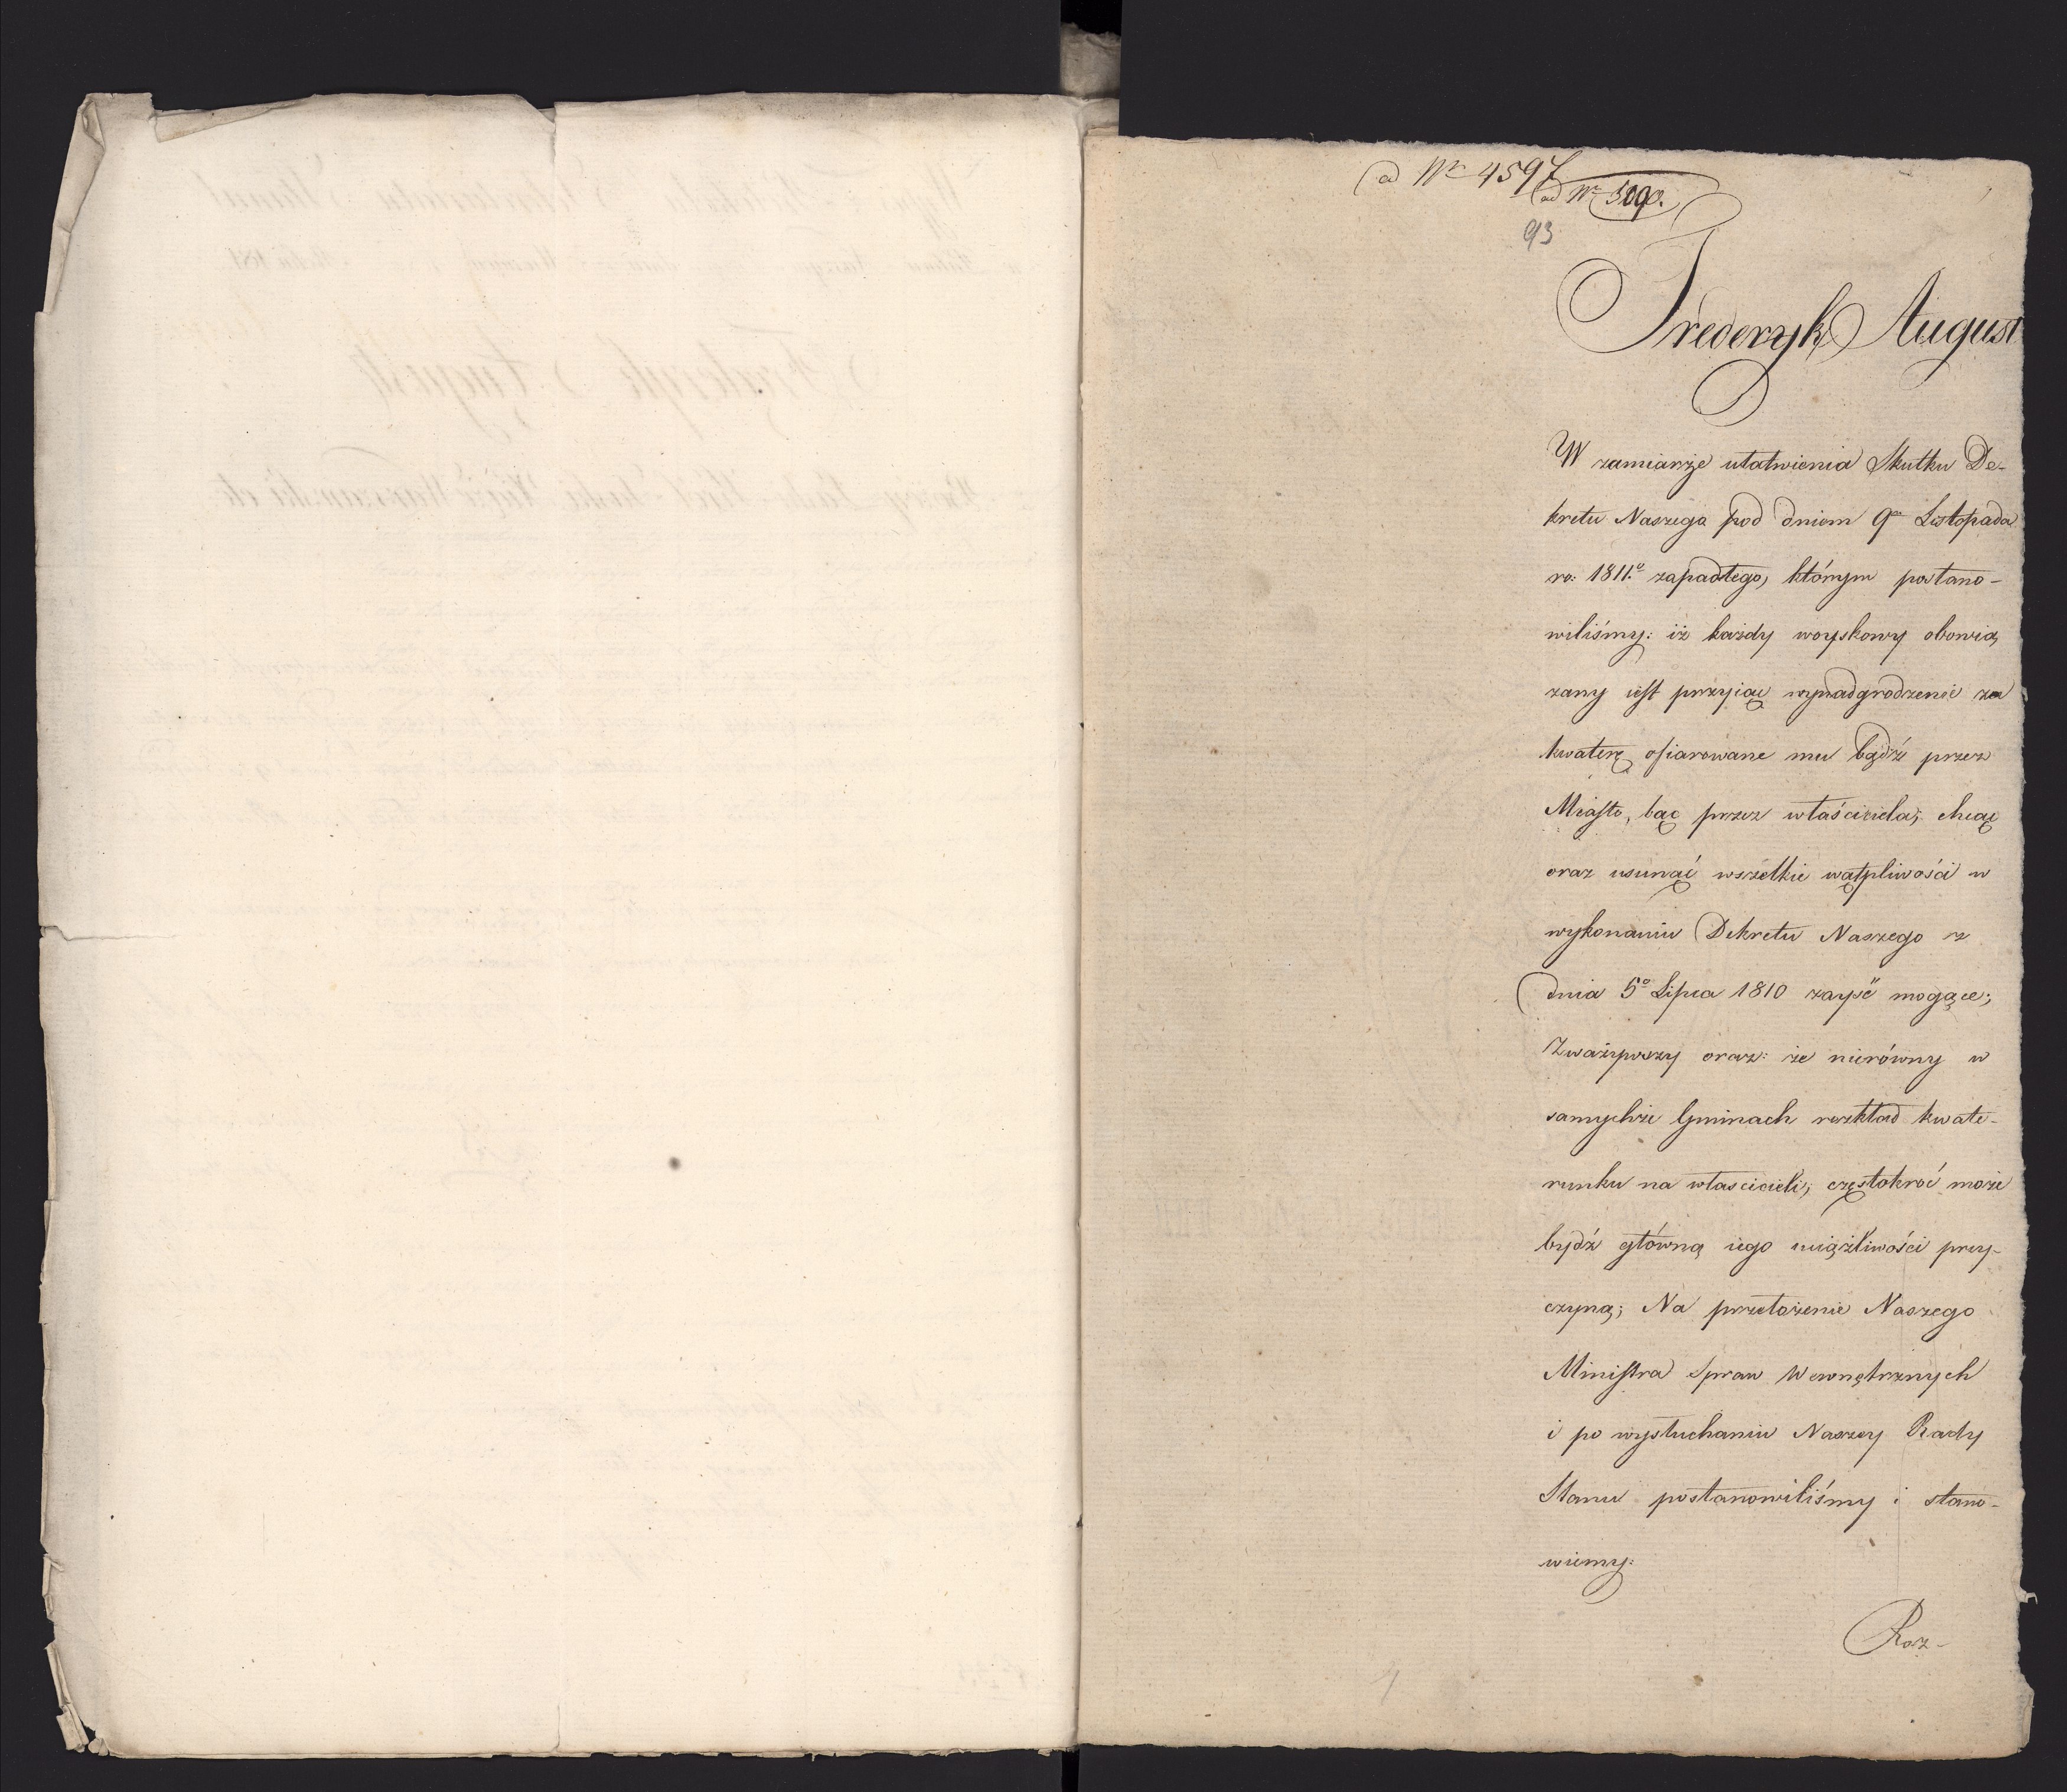 ad Nr 4597
ad Nr 3090.
93
Frederyk August
W zamiarze ułatwienia Skutku De-
kretu Naszego pod dniem 9o Listopada
ro: 1811.o zapadłego, którym postano-
wiliśmy: iż każdy woyskowy obowią
zany iest przyiąć wynadgrodzenie za
kwaterę ofiarowane mu bądźź przez
Miasto, bąć przez właściciela; chcąc
oraz usunąć wszelkie wątpliwości w
wykonaniu Dekretu Naszego z
dnia 5o Lipca 1810 zayść mogące;
Zważywszy oraz: że nierówny w
samychże Gminach rozkład kwate-
runku na właścicieli; częstokroć może
bydź główną iego uciążliwości przy-
czyną; Na przełożenie Naszego
Ministra Spraw Wewnętrznych
i po wysłuchaniu Naszey Rady
Stanu postanowiliśmy i stano-
wiemy:
Roz-